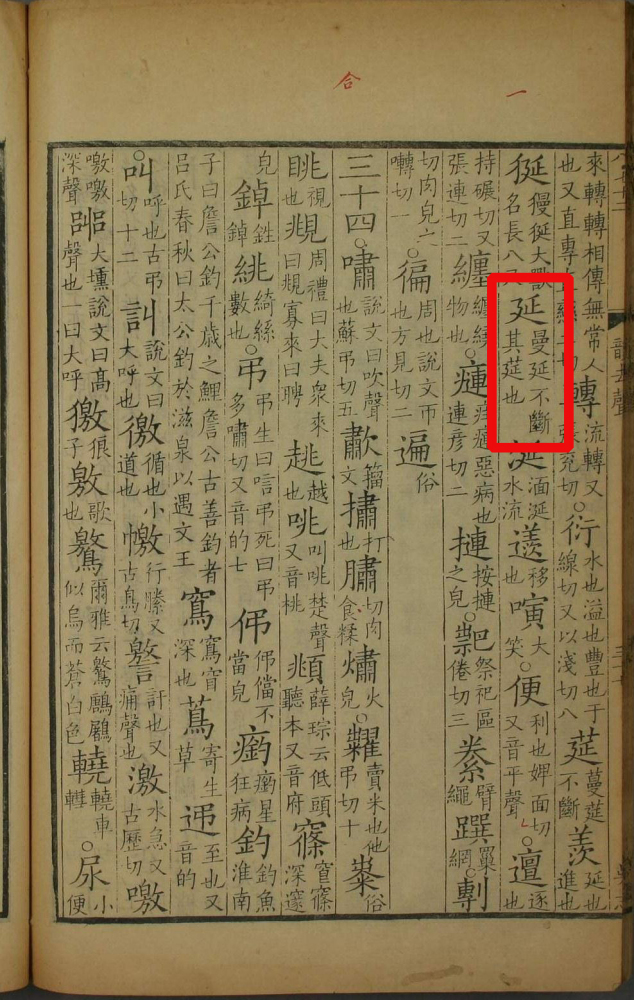 來轉轉相傳無常人也又直專直戀二切傳流轉又張兖切○衍水也溢也豐也于線切又以淺切八莚蔓莚不斷羨延也進也
狿獌狿大獸名長八尺延曼延不斷其莚也涎湎涎水流移也大笑○便利也婢面切又音平聲○邅逐也
持碾切又張連切二纏纏繞物也○惡病也連彦切二摙按摙之皃○祭祀區倦切三絭臂繩罥網剸
切肉皃囀切一○徧周也說文帀也方見切二遍俗
三十四○嘯說文曰吹聲也蘇弔切五歗籀文打也切肉食糅火皃○糶賣米也他弔切十俗
眺視也覜周禮曰大夫衆來曰覜寡來曰聘趒越也咷叫咷楚聲又音桃頫薛琮云低頭聽本又音府窱窅窱深邃
皃鋽鉎鋽絩綺絲數也○弔弔生曰唁弔死曰弔多嘯切又音的七伄伄儅不當皃瘹瘹星狂病釣釣魚淮南
子曰詹公釣千歲之鯉詹公古善釣者呂氏春秋曰太公釣於滋泉以遇文王窵窵窅深也蔦寄生草至也又音的
○叫呼也古弔切十二訆說文曰大呼也徼循也小道也行縢又古鳥切訐也又痛聲也激水急又古歷切噭
噭噭深聲嘂大壎說文曰高聲也一曰大呼獥狼子敫歌也鷔爾雅云似烏而蒼白色轎車○尿小便